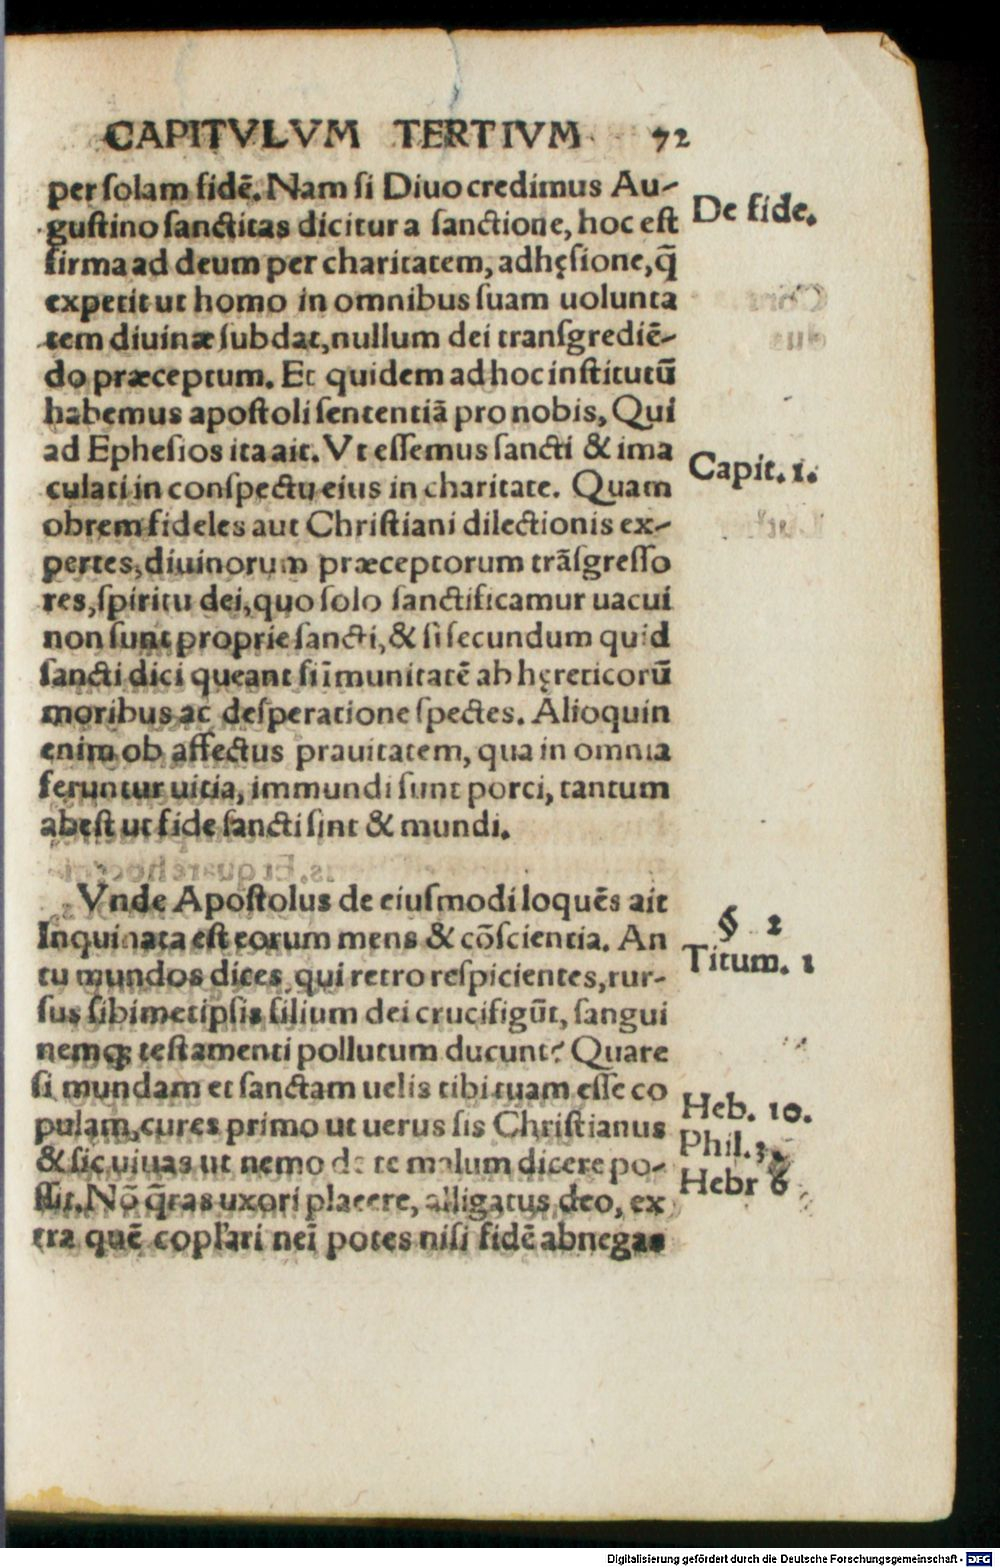 CAPITVLVM TERTIVM 72
per ſolam fidē. Nam ſi Diuo credimus Au-
guſtino ſanctitas dicitur a ſanctione, hoc eſt
firma ad deum per charitatem, adhęſione, q̄
expetit ut homo in omnibus ſuam uolunta
tem diuinæ ſubdat, nullum dei tranſgrediē-
do præceptum. Et quidem ad hoc inſtitutū
habemus apoſtoli ſententiā pro nobis, Qui
ad Epheſios ita ait. Vt eſſemus ſancti & ima
culati in conſpectu eius in charitate. Quam
obrem fideles aut Chriſtiani dilectionis ex-
pertes, diuinorum præceptorum trāſgreſſo
res, ſpiritu dei, quo ſolo ſanctificamur uacui
non ſunt proprie ſancti, & ſi ſecundum quid
ſancti dici queant ſi īmunitatē ab hęreticorū
moribus ac deſperatione ſpectes. Alioquin
enim ob affectus prauitatem, qua in omnia
feruntur uitia, immundi ſunt porci, tantum
abeſt ut fide ſancti ſint & mundi.
De fide.
Capit. 1.
Vnde Apoſtolus de eiuſmodi loquēs ait
Inquinata eſt eorum mens & cōſcientia. An
tu mundos dices, qui retro reſpicientes, rur-
ſus ſibimetipſis filium dei crucifigūt, ſangui
nemq; teſtamenti pollutum ducunt? Quare
ſi mundam et ſanctam uelis tibi tuam eſſe co
pulam, cures primo ut uerus ſis Chriſtianus
& ſic uiuas ut nemo de te malum dicere po-
ſſit. Nō q̄ras uxori placere, alligatus deo, ex
tra quē copl'ari nei potes niſi fidē abnegas
§ 2
Titum. 1
Heb. 10.
Phil. 3
Hebr 6
Digitalisierung gefördert durch die Deutsche Forschungsgemeinschaft - DFG